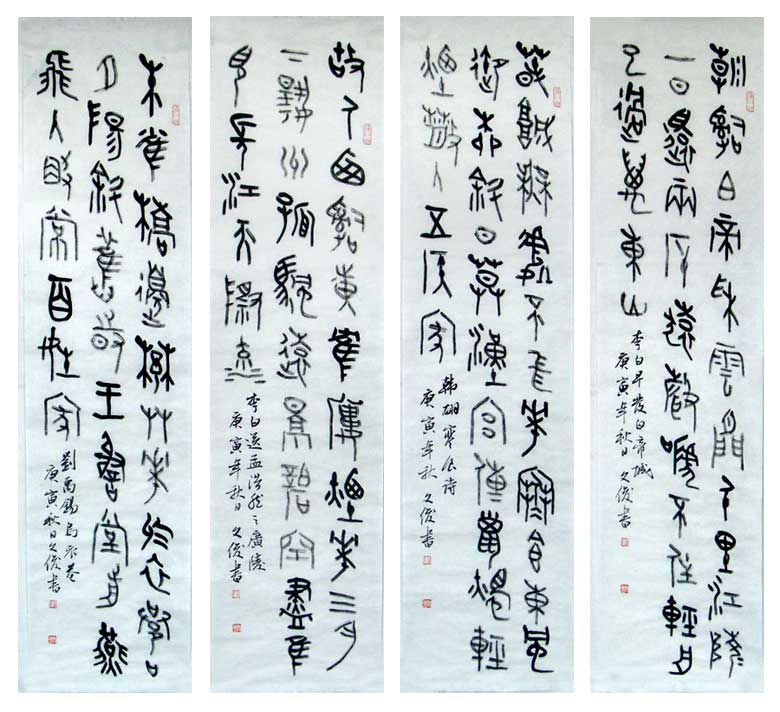 朝辭白帝彩雲間千里江陵
一日還兩岸猿聲啼不住輕舟
已過萬重山
李白早發白帝城
庚寅年秋日 久俊書
春城無處不飛花寒食東風
御柳斜日暮漢宮傳蠟燭輕
煙散入五侯家
韩翃寒食诗
庚寅年秋 久俊書
故人西辭黃鶴樓煙花三月
下揚州孤帆遠影碧空盡唯
見長江天際流
李白送孟浩然之廣陵
庚寅年秋日 久俊書
朱雀橋邊野草花烏衣巷口
夕陽斜舊時王謝堂前燕
飛入尋常百姓家
劉禹錫烏衣巷
庚寅秋日久俊書